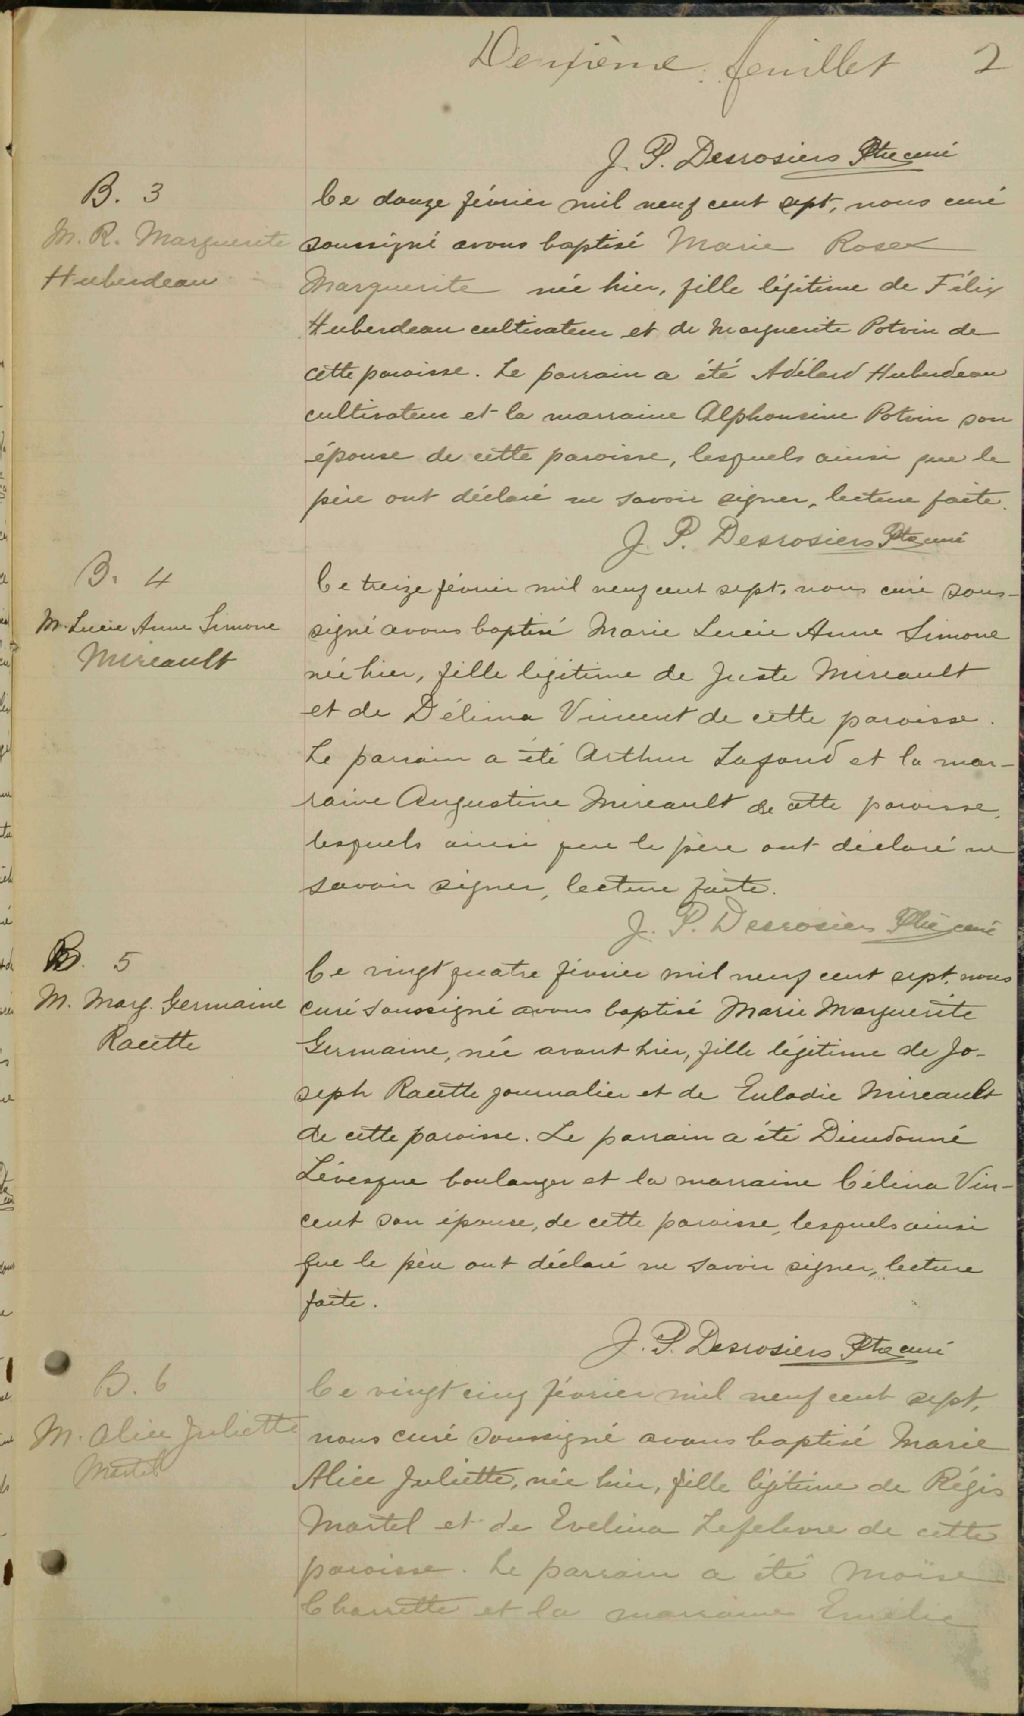 Deuxième feuillet 2
J. P. Desrosiers Ptre curé
B. 3
M. R. Marguerite
Huberdeau
Ce douze février mil neuf cent sept, nous curé
soussigné avons baptisé Marie Rose
Marguerite née hier, fille légitime de Félix
Huberdeau cultivateur et de Marguerite Potvin de
cette paroisse. Le parrain a été Adélard Huberdeau
cultivateur et la marraine Alphonsine Potvin son
épouse de cette paroisse, lesquels ainsi que le
père ont déclaré ne savoir signer, lecture faite.
J. P. Desrosiers Ptre curé
B. 4
M. Lucie Anne Simone
Mireault
Ce treize février mil neuf cent sept, nous curé sous-
signé avons baptisé Marie Lucie Anne Simone
née hier, fille légitime de Juste Mireault
et de Délima Vincent de cette paroisse.
Le parrain a été Arthur Lafond et la mar-
raine Augustine Mireault de cette paroisse,
lesquels ainsi que le père ont déclaré ne
savoir signer, lecture faite.
J. P. Desrosiers Ptre curé
B. 5
M. Marg. Germaine
Racette
Ce vingt quatre février mil neuf cent sept, nous
curé soussigné avons baptisé Marie Marguerite
Germaine, née avant hier, fille légitime de Jo-
seph Racette journalier et de Eulodie Mireault
de cette paroisse. Le parrain a été Dieudonné
Lévesque boulanger et la marraine Célina Vin-
cent son épouse, de cette paroisse, lesquels ainsi
que le père ont déclaré ne savoir signer, lecture
faite.
J. P. Desrosiers Ptre curé
B. 6
M. Alice Juliette
Martel
Ce vingt cinq février mil neuf cent sept,
nous curé soussigné avons baptisé Marie
Alice Juliette, née hier, fille légitime de Régis
Martel et de Evelina Lefebvre de cette
paroisse. Le parrain a été Moïse
Charrette et la marraine Emélie